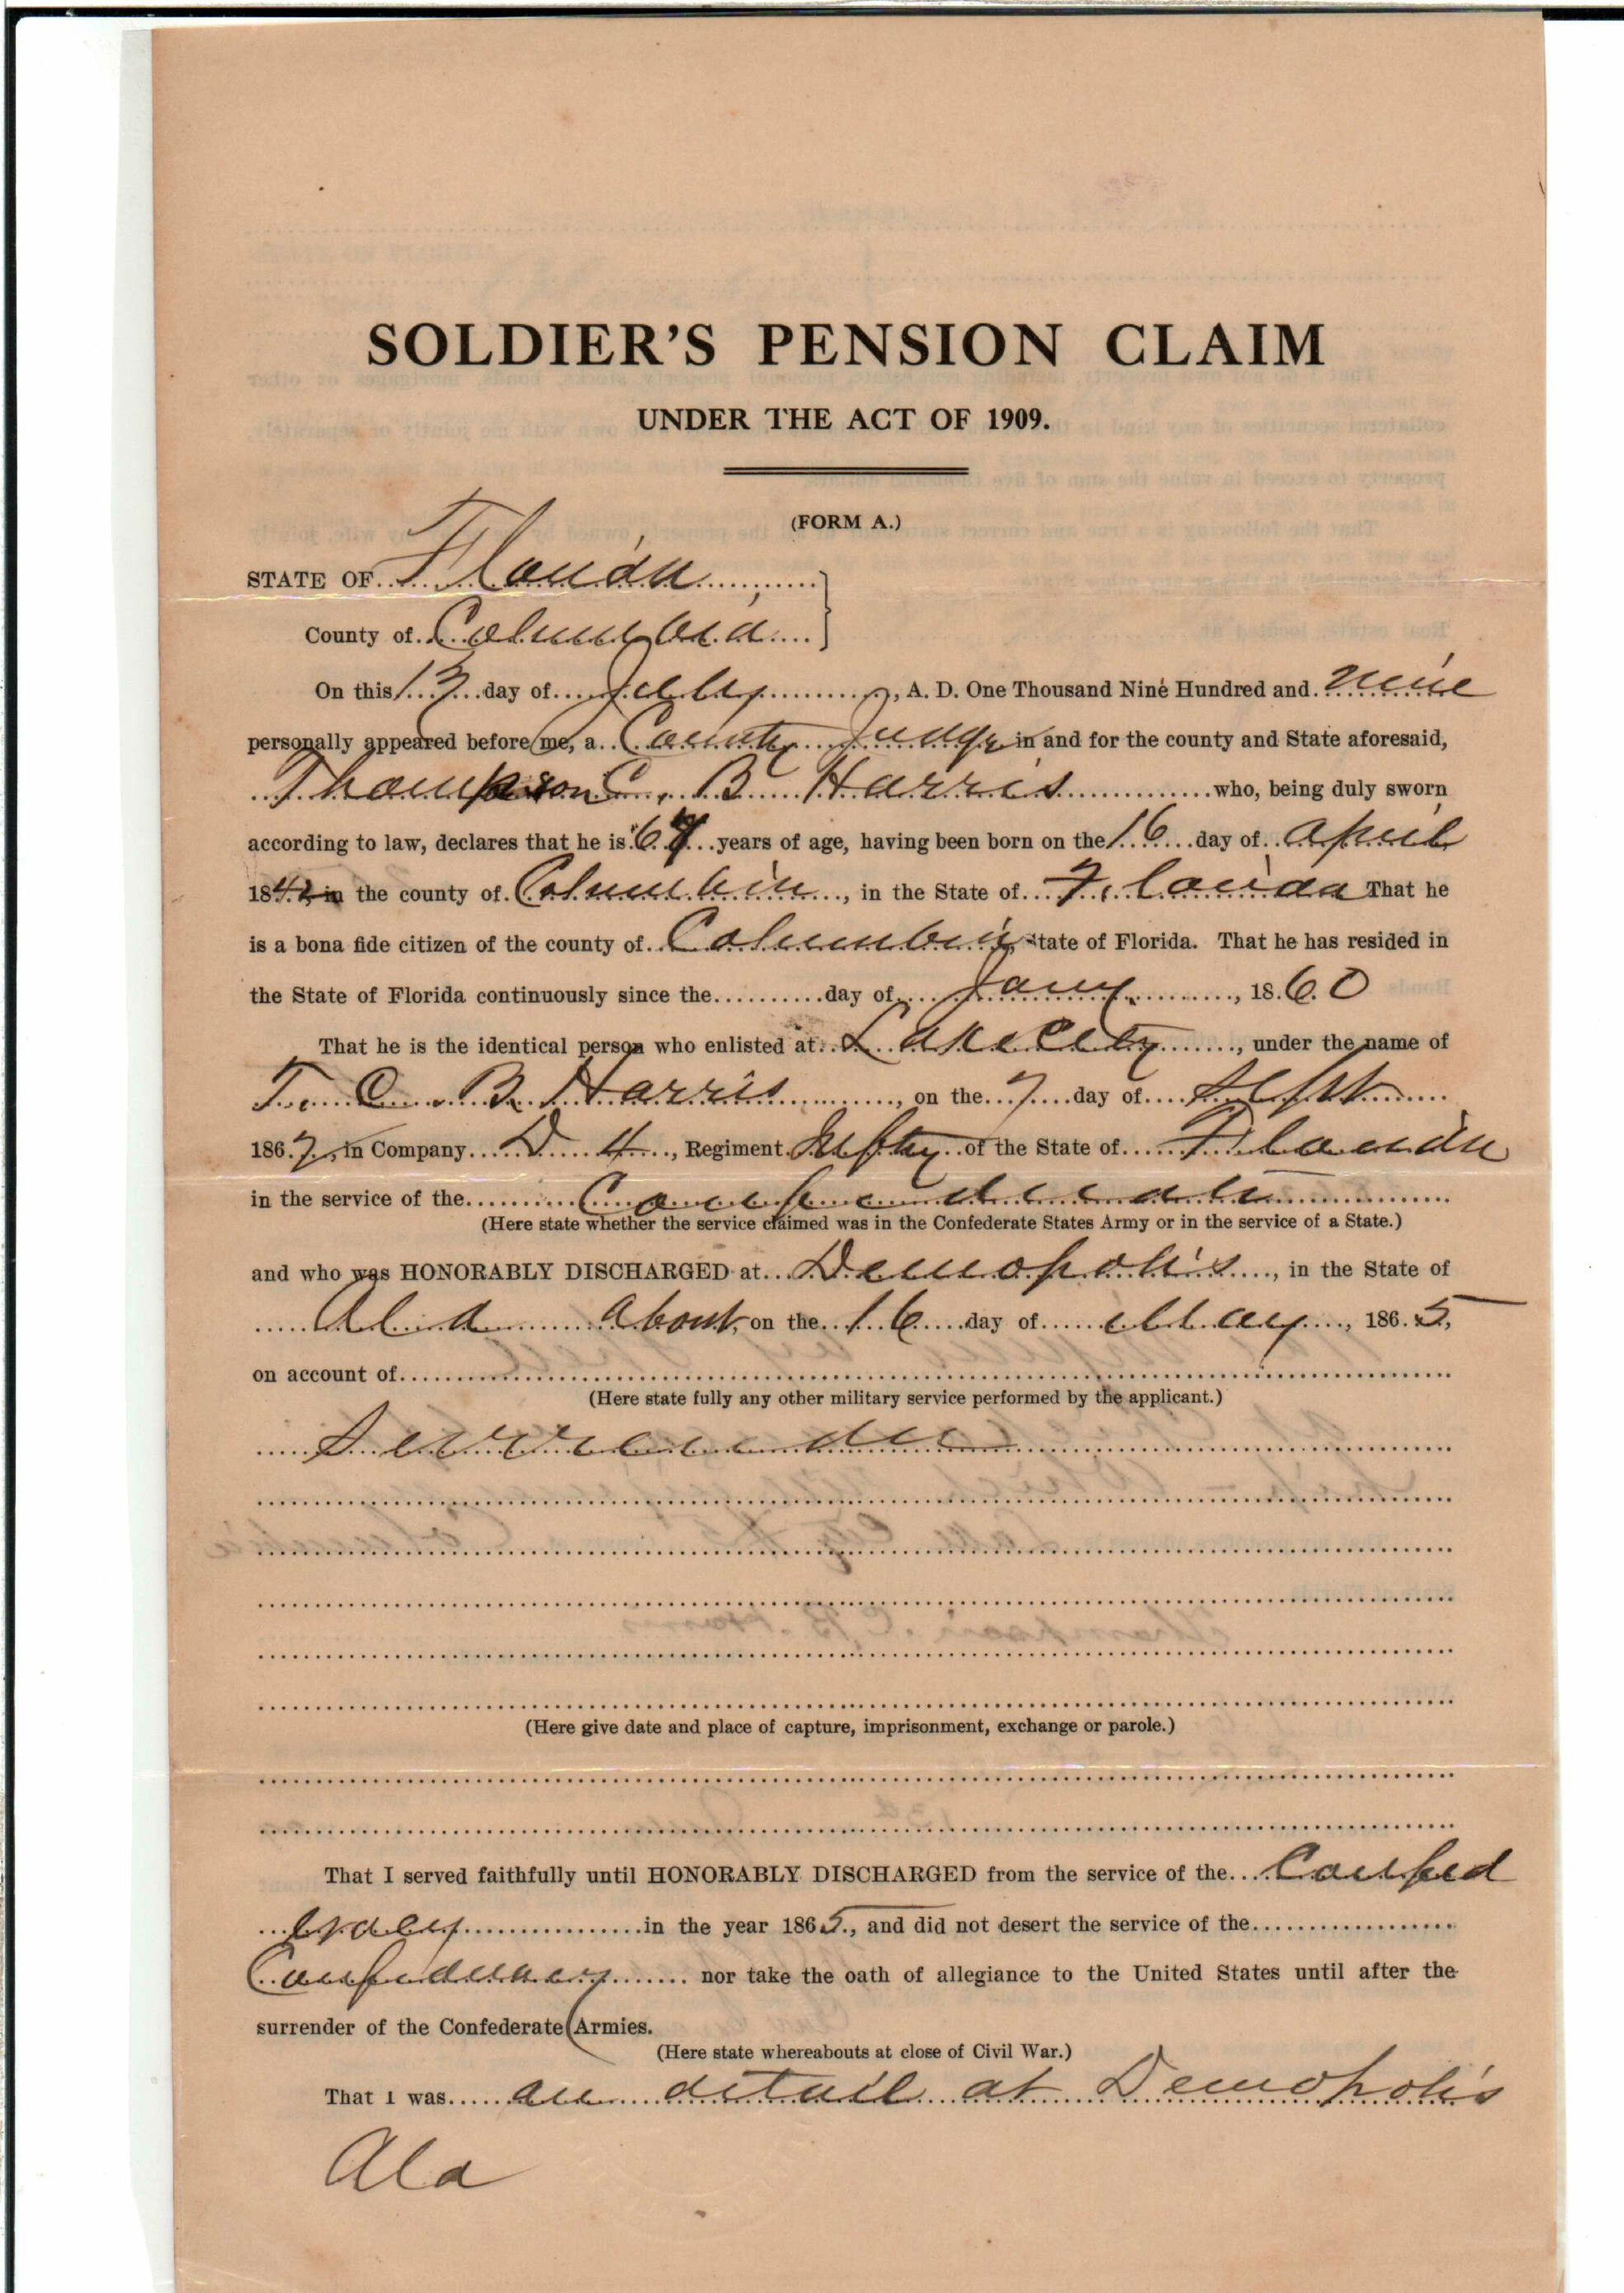 SOLDIER'S PENSION CLAIM
UNDER THE ACT OF 1909.
(FORM A.)
STATE OF Florida
County of Columbia
On this 13 day of July, A. D. One Thousand Nine Hundred and nine
personally appeared before me, a County Judge in and for the county and State aforesaid,
Thompson C. B. Harris who, being duly sworn
according to law, declares that he is 67 years of age, having been born on the 16 day of April
1842 in the county of Columbia, in the State of Florida That he
is a bona fide citizen of the county of Columbia State of Florida. That he has resided in
the State of Florida continuously since the day of Jany, 1860
That he is the identical person who enlisted at Lake City, under the name of
T. C. B. Harris, on the 7 day of Sept
186 in Company D 4, Regiment Infty of the State of Florida
in the service of the Confederate
(Here state whether the service claimed was in the Confederate States Army or in the service of a State.)
and who was HONORABLY DISCHARGED at Demopolis, in the State of
Ala about, on the 16 day of May, 1865,
on account of
(Here state fully any other military service performed by the applicant.)
Surrender
(Here give date and place of capture, imprisonment, exchange or parole.)
That I served faithfully until HONORABLY DISCHARGED from the service of the Confed
eracy in the year 1865., and did not desert the service of the
Confederacy nor take the oath of allegiance to the United States until after the
surrender of the Confederate Armies.
(Here state whereabouts at close of Civil War.)
That I was on detail at Demopolis
Ala